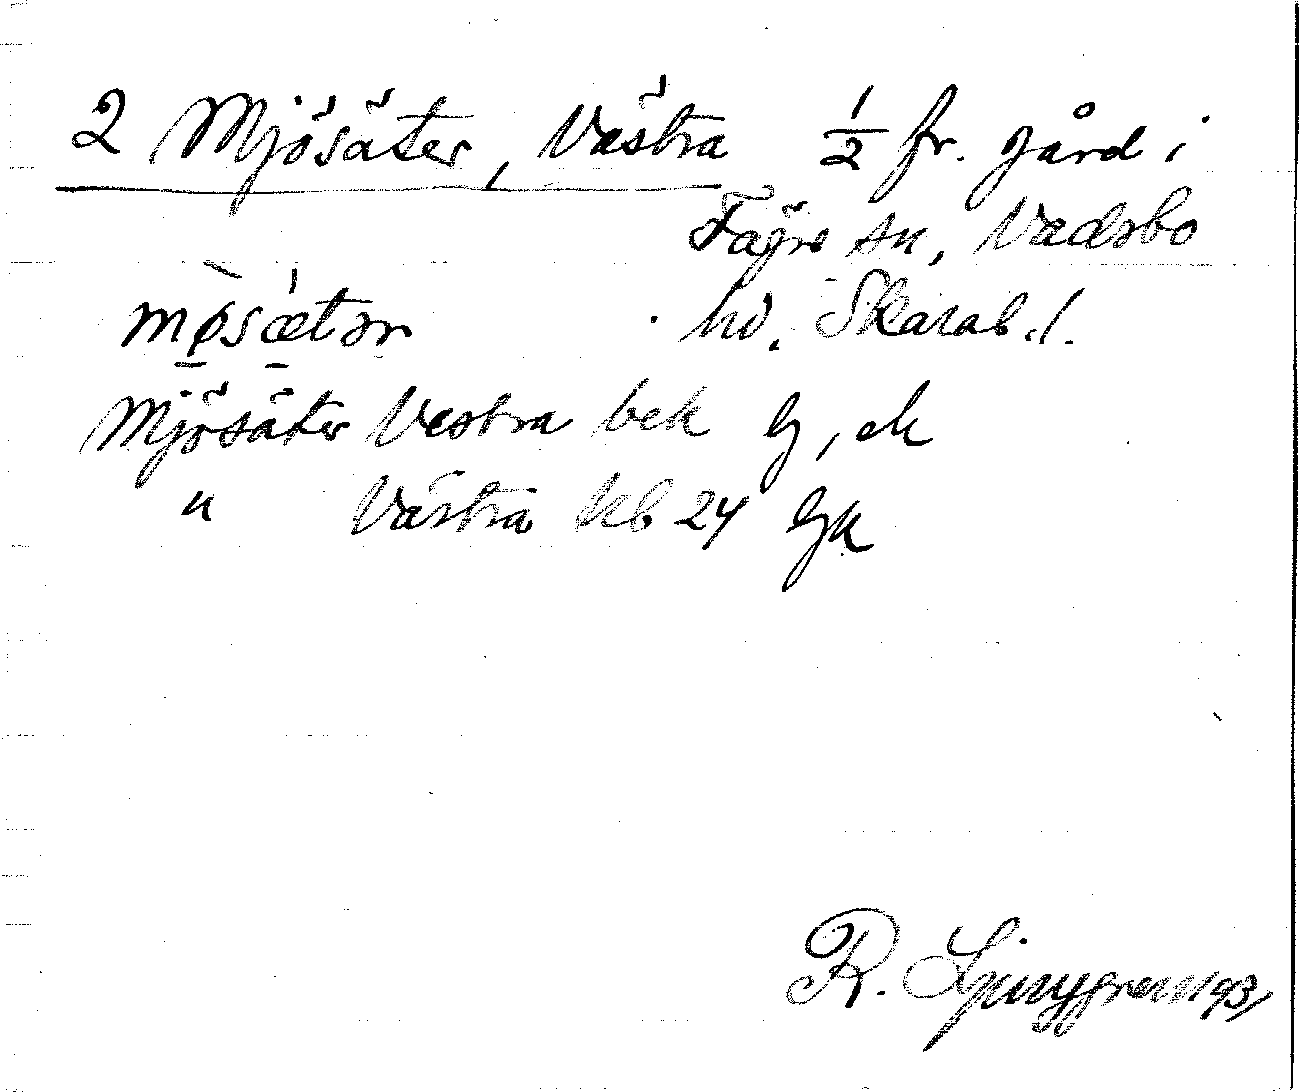 2 Mjösäter, Västra ½ fr. gård i
Fägre sn, Vadsbo
hd. Skarab. l.
mø̀sǽtər
Mjösäter Vestra bek Gj, ek
" Västra kb 24 Gjk
R. Ljunggren 193